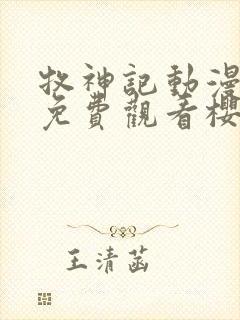 牧神記動漫
免費觀看櫻
王清菡